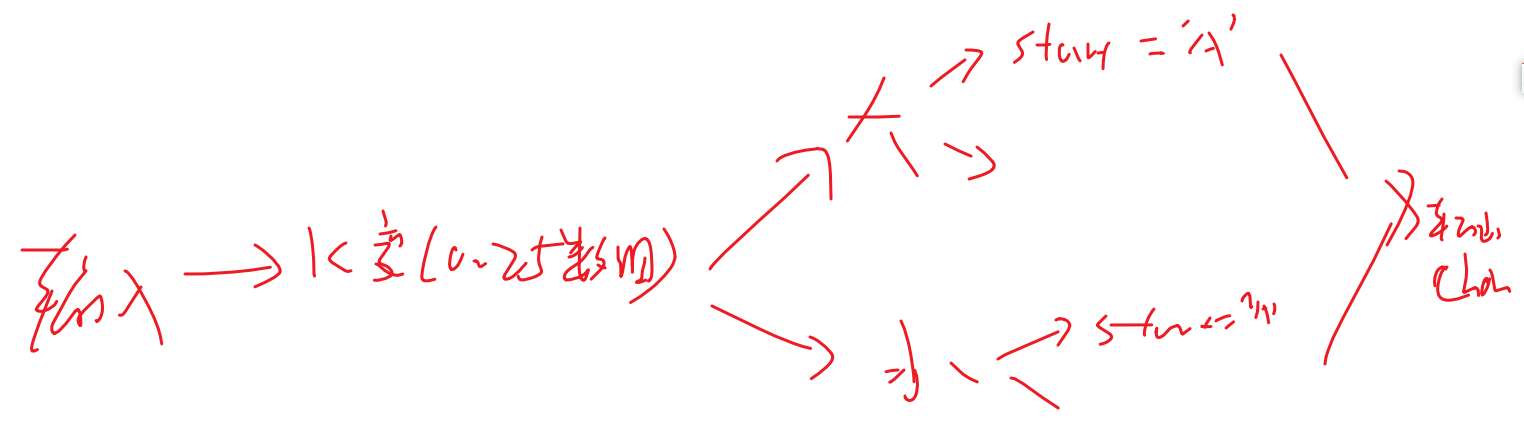 输入
K 密(0~25数组)
大
start = 'A'
小
start = 'a'
转换
char